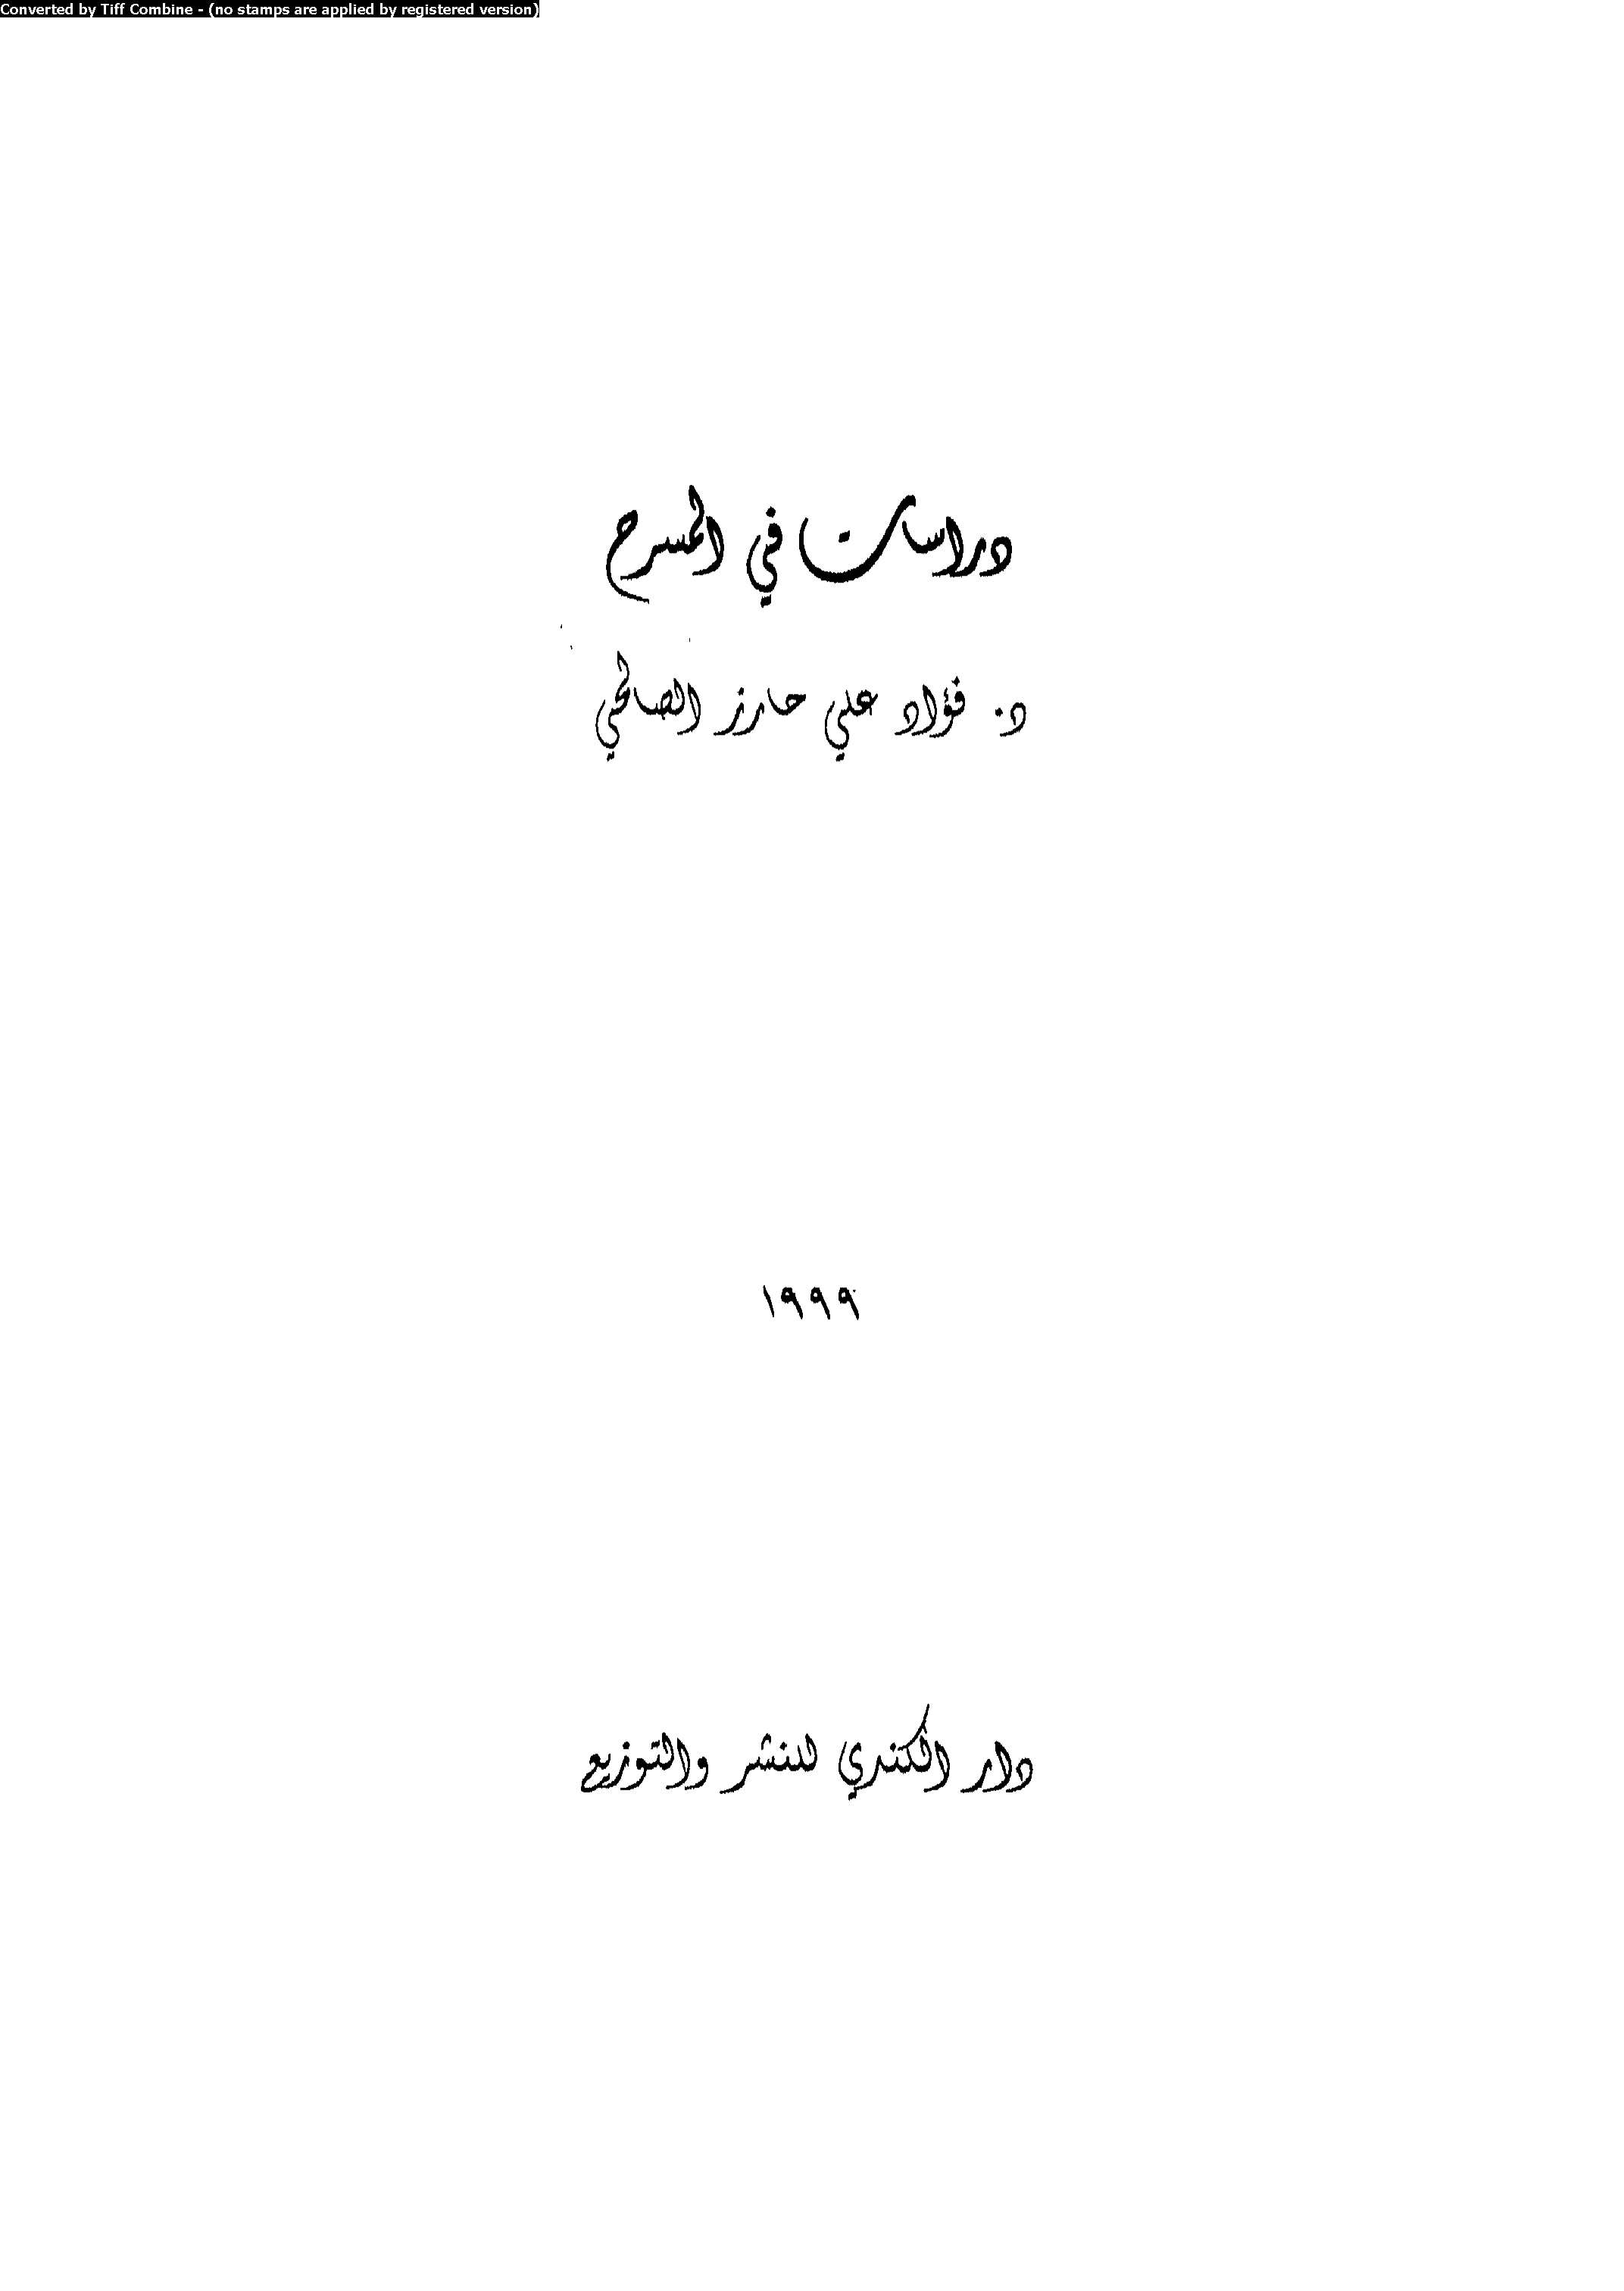 Converted by Tiff Combine - (no stamps are applied by registered version)
دراسات في المسرح
د. فؤاد علي حارز الصالحي
١٩٩٩
دار الكندي للنشر والتوزيع